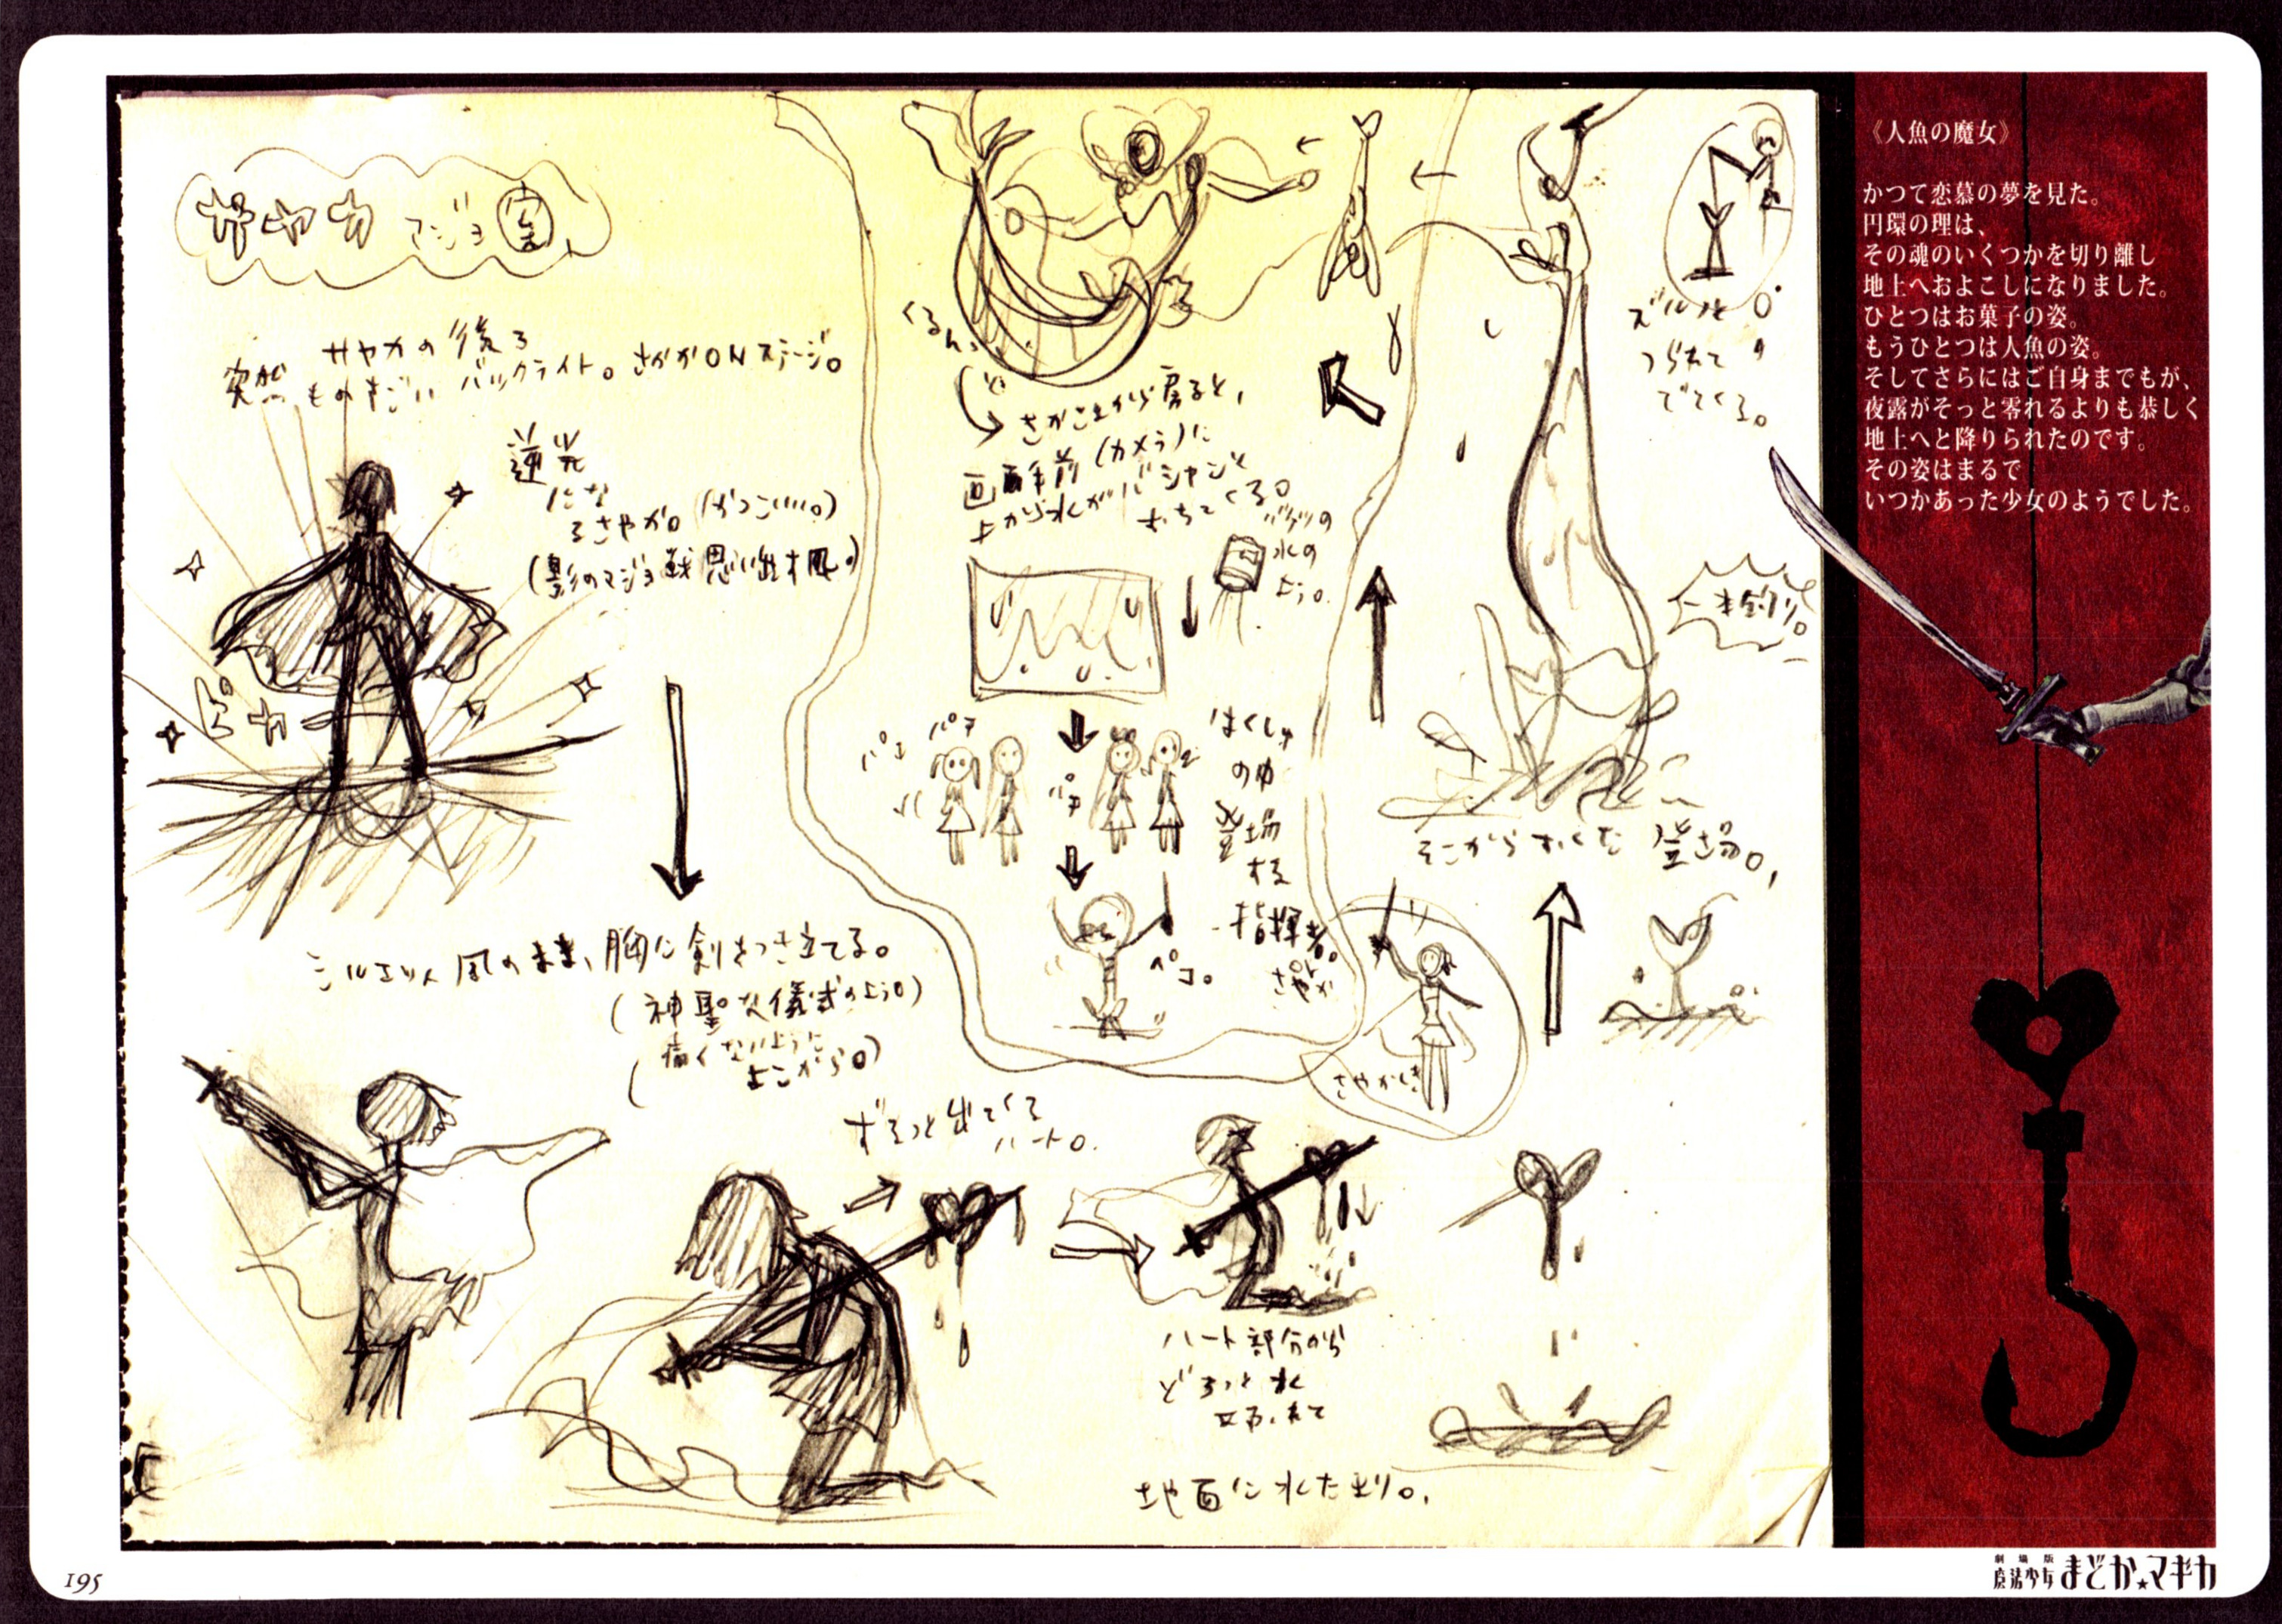 サヤカ マジョ(案)
突然 サヤカの後ろ
ものすごい バックライト。さやかONステージ。
逆光
にな
るさやか。(かっこいい。)
(影のマジョ戦思い出す風。)
ピカ
シルエット風のまま、胸に剣をつき立てる。
(神聖な儀式のよう。)
(痛くないように
よこから。)
ずるっと出てくる
ハート。
ハート部分から
どろっと水
地面に水たまり。
そこからすくっと登場。
一本釣り。
ズルルと
つられて
でてくる。
くるん。
さかさまから戻ると、
画面手前(カメラ)に
上から水がバシャンと
おちてくる。
バケツの
水の
よう。
パチ
パチ
パチ
はくしゅ
の中
登場
する
指揮者。
さやか
ペコ。
《人魚の魔女》
かつて恋慕の夢を見た。
円環の理は、
その魂のいくつかを切り離し
地上へおよこしになりました。
ひとつはお菓子の姿。
もうひとつは人魚の姿。
そしてさらにはご自身までもが、
夜露がそっと零れるよりも恭しく
地上へと降りられたのです。
その姿はまるで
いつかあった少女のようでした。
195
劇場版
魔法少女まどか★マギカ